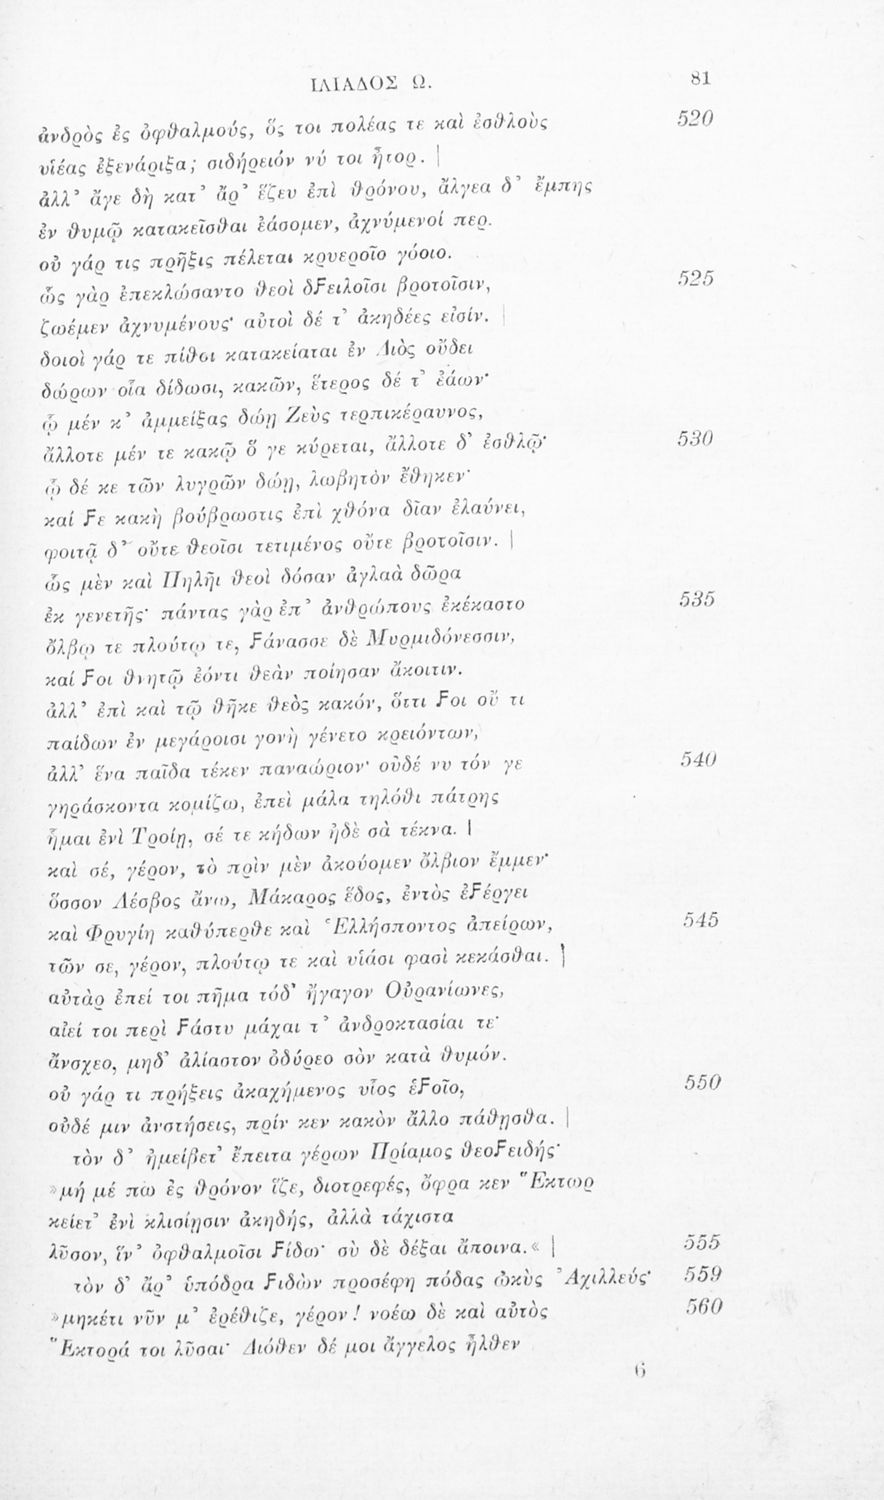 ΙΛΙΑΔΟΣ Ω. 81
ἀνδρὸς ἐς ὀφθαλμούς, ὅς τοι πολέας τε καὶ ἐσθλοὺς 520
υἱέας ἐξενάριξα; σιδήρειόν νύ τοι ἦτορ. |
ἀλλ' ἄγε δὴ κατ' ἄρ' ἕζευ ἐπὶ θρόνου, ἄλγεα δ' ἔμπης
ἐν θυμῷ κατακεῖσθαι ἐάσομεν, ἀχνύμενοί περ.
οὐ γάρ τις πρῆξις πέλεται κρυεροῖο γόοιο.
ὣς γὰρ ἐπεκλώσαντο θεοὶ δϝειλοῖσι βροτοῖσιν, 525
ζωέμεν ἀχνυμένους· αὐτοὶ δέ τ' ἀκηδέες εἰσίν. |
δοιοὶ γάρ τε πίθοι κατακείαται ἐν Διὸς οὔδει
δώρων οἷα δίδωσι, κακῶν, ἕτερος δέ τ' ἐάων·
ᾧ μέν κ' ἀμμείξας δώῃ Ζεὺς τερπικέραυνος,
ἄλλοτε μέν τε κακῷ ὅ γε κύρεται, ἄλλοτε δ' ἐσθλῷ· 530
ᾧ δέ κε τῶν λυγρῶν δώῃ, λωβητὸν ἔθηκεν·
καί ϝε κακὴ βούβρωστις ἐπὶ χθόνα δῖαν ἐλαύνει,
φοιτᾷ δ' οὔτε θεοῖσι τετιμένος οὔτε βροτοῖσιν. |
ὣς μὲν καὶ Πηλῆι θεοὶ δόσαν ἀγλαὰ δῶρα
ἐκ γενετῆς· πάντας γὰρ ἐπ' ἀνθρώπους ἐκέκαστο 535
ὄλβῳ τε πλούτῳ τε, ϝάνασσε δὲ Μυρμιδόνεσσιν,
καί ϝοι θνητῷ ἐόντι θεὰν ποίησαν ἄκοιτιν.
ἀλλ' ἐπὶ καὶ τῷ θῆκε θεὸς κακόν, ὅττι ϝοι οὔ τι
παίδων ἐν μεγάροισι γονὴ γένετο κρειόντων,
ἀλλ' ἕνα παῖδα τέκεν παναώριον· οὐδέ νυ τόν γε 540
γηράσκοντα κομίζω, ἐπεὶ μάλα τηλόθι πάτρης
ἧμαι ἐνὶ Τροίῃ, σέ τε κήδων ἠδὲ σὰ τέκνα. |
καὶ σέ, γέρον, τὸ πρὶν μὲν ἀκούομεν ὄλβιον ἔμμεν·
ὅσσον Λέσβος ἄνω, Μάκαρος ἕδος, ἐντὸς ἐϝέργει
καὶ Φρυγίη καθύπερθε καὶ Ἑλλήσποντος ἀπείρων, 545
τῶν σε, γέρον, πλούτῳ τε καὶ υἱάσι φασὶ κεκάσθαι. |
αὐτὰρ ἐπεί τοι πῆμα τόδ' ἤγαγον Οὐρανίωνες,
αἰεί τοι περὶ ϝάστυ μάχαι τ' ἀνδροκτασίαι τε·
ἄνσχεο, μηδ' ἀλίαστον ὀδύρεο σὸν κατὰ θυμόν.
οὐ γάρ τι πρήξεις ἀκαχήμενος υἷος ἑϝοῖο, 550
οὐδέ μιν ἀνστήσεις, πρίν κεν κακὸν ἄλλο πάθησθα. |
τὸν δ' ἠμείβετ' ἔπειτα γέρων Πρίαμος θεοϝειδής·
»μή μέ πω ἐς θρόνον ἵζε, διοτρεφές, ὄφρα κεν Ἕκτωρ
κείετ' ἐνὶ κλισίῃσιν ἀκηδής, ἀλλὰ τάχιστα
λῦσον, ἵν' ὀφθαλμοῖσι ϝίδω· σὺ δὲ δέξαι ἄποινα.« | 555
τὸν δ' ἄρ' ὑπόδρα ϝιδὼν προσέφη πόδας ὠκὺς Ἀχιλλεύς· 559
»μηκέτι νῦν μ' ἐρέθιζε, γέρον! νοέω δὲ καὶ αὐτὸς 560
Ἕκτορά τοι λῦσαι· Διόθεν δέ μοι ἄγγελος ἦλθεν
6